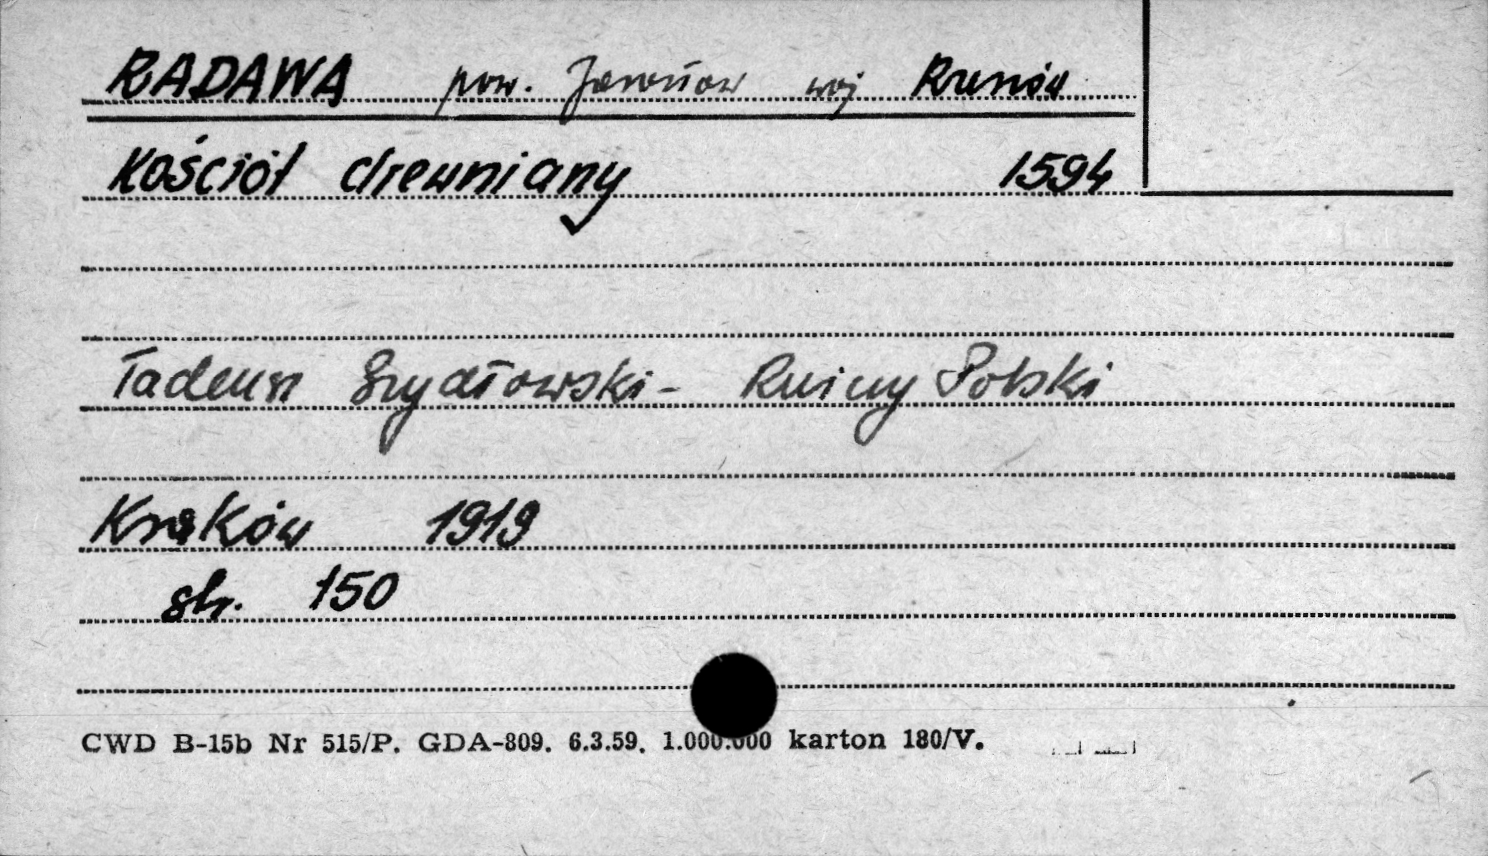 RADAWA pow. Jarosław woj Rzeszów
Kościół drewniany 1594
Tadeusz Szydłowski - Ruiny Polski
Kraków 1919
str. 150
CWD B-15b Nr 515/P. GDA-809. 6.3.59. 1.000.000 karton 180/V.